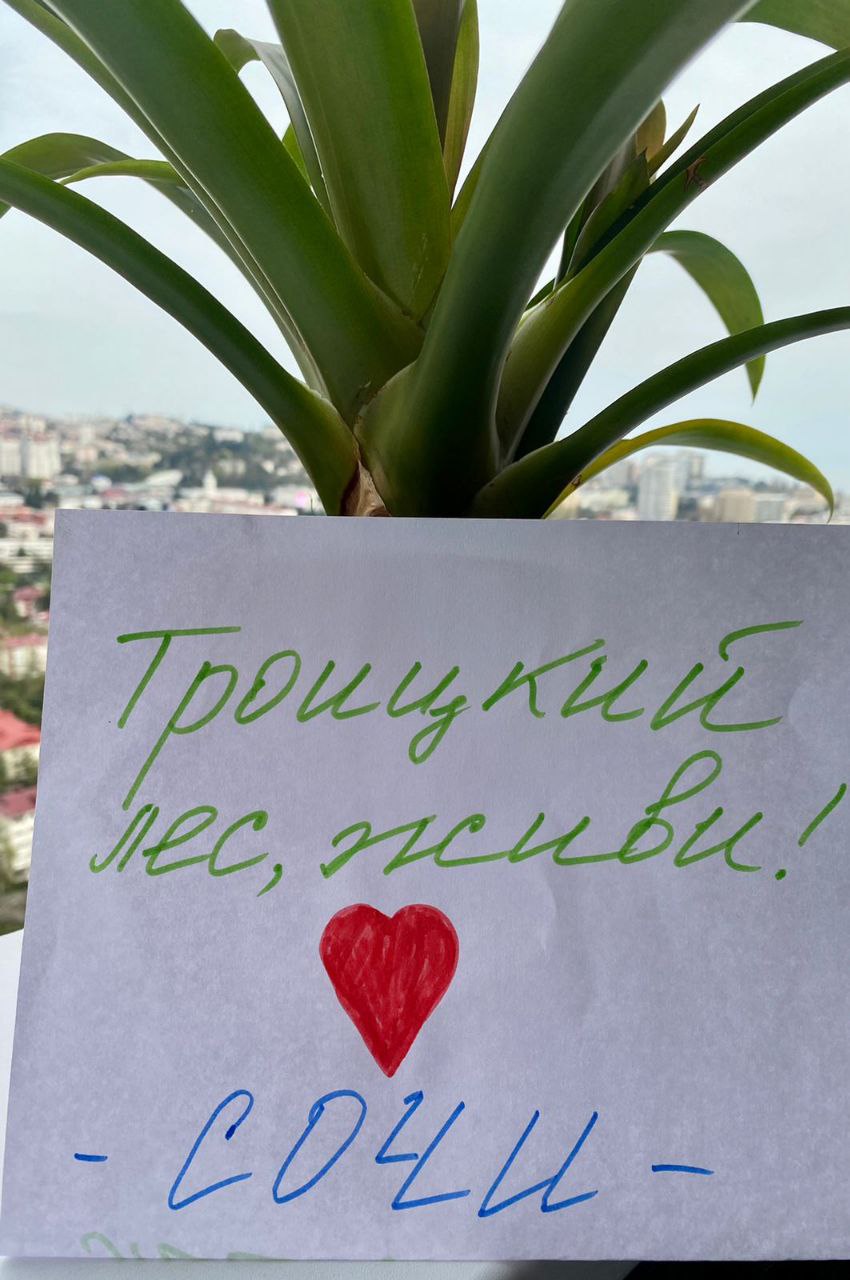 Троицкий
лес, живи!
- СОЧИ -